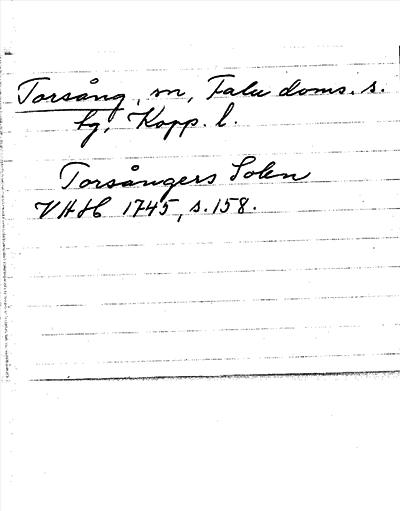 Torsång, sn, Falu doms. s.
hg, Kopp. l.
Torsångers Solen
VHAH 1745, s. 158.